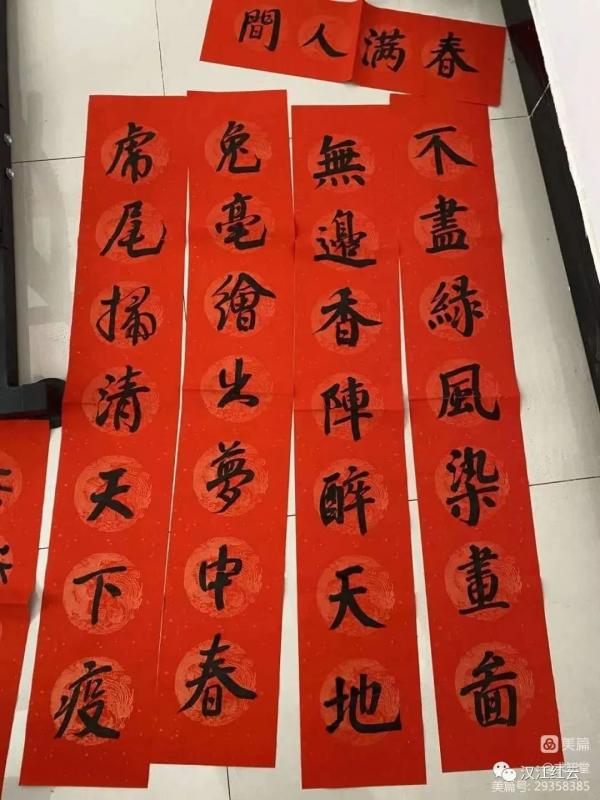 春满人間
不盡綠風染畫啚
無邊香陣醉天地
兔毫繪出夢中春
虎尾掃清天下疫
美篇
汉江红云
美篇号: 29358385